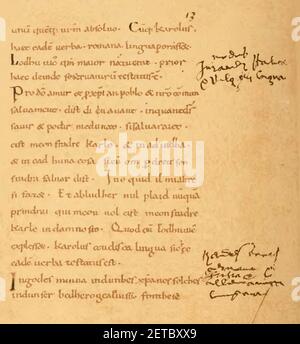 13
unu quēq; urm inabsoluo. Cūq; karolus,
haec eadē verba. romana lingua perorasset.
Lodhuuic qm maior natu erat. prior
haec deinde se seruaturū testatus est.
Pro dō amur & p xpian poblo & nro comun
saluament. dist di en auant. inquant ds
sauir & podir me dunat. si saluarai eo.
cist meon fradre karlo. & in ad iudha
& in cad huna cosa. sicū om p dreit son
fradra saluar dist. Ino quid il mi altre
si fazet. Et abludher nul plaid nūquā
prindrai qui meon uol cist meon fradre
karle in damno sit. Quod cū lodhuuic
explesset. karolus teudisca lingua sic ec
eadē verba testatus est.
In godes minna ind in thes xpanes folches
ind unser bedhero gealtnissi. fonthese
2ETBXX9